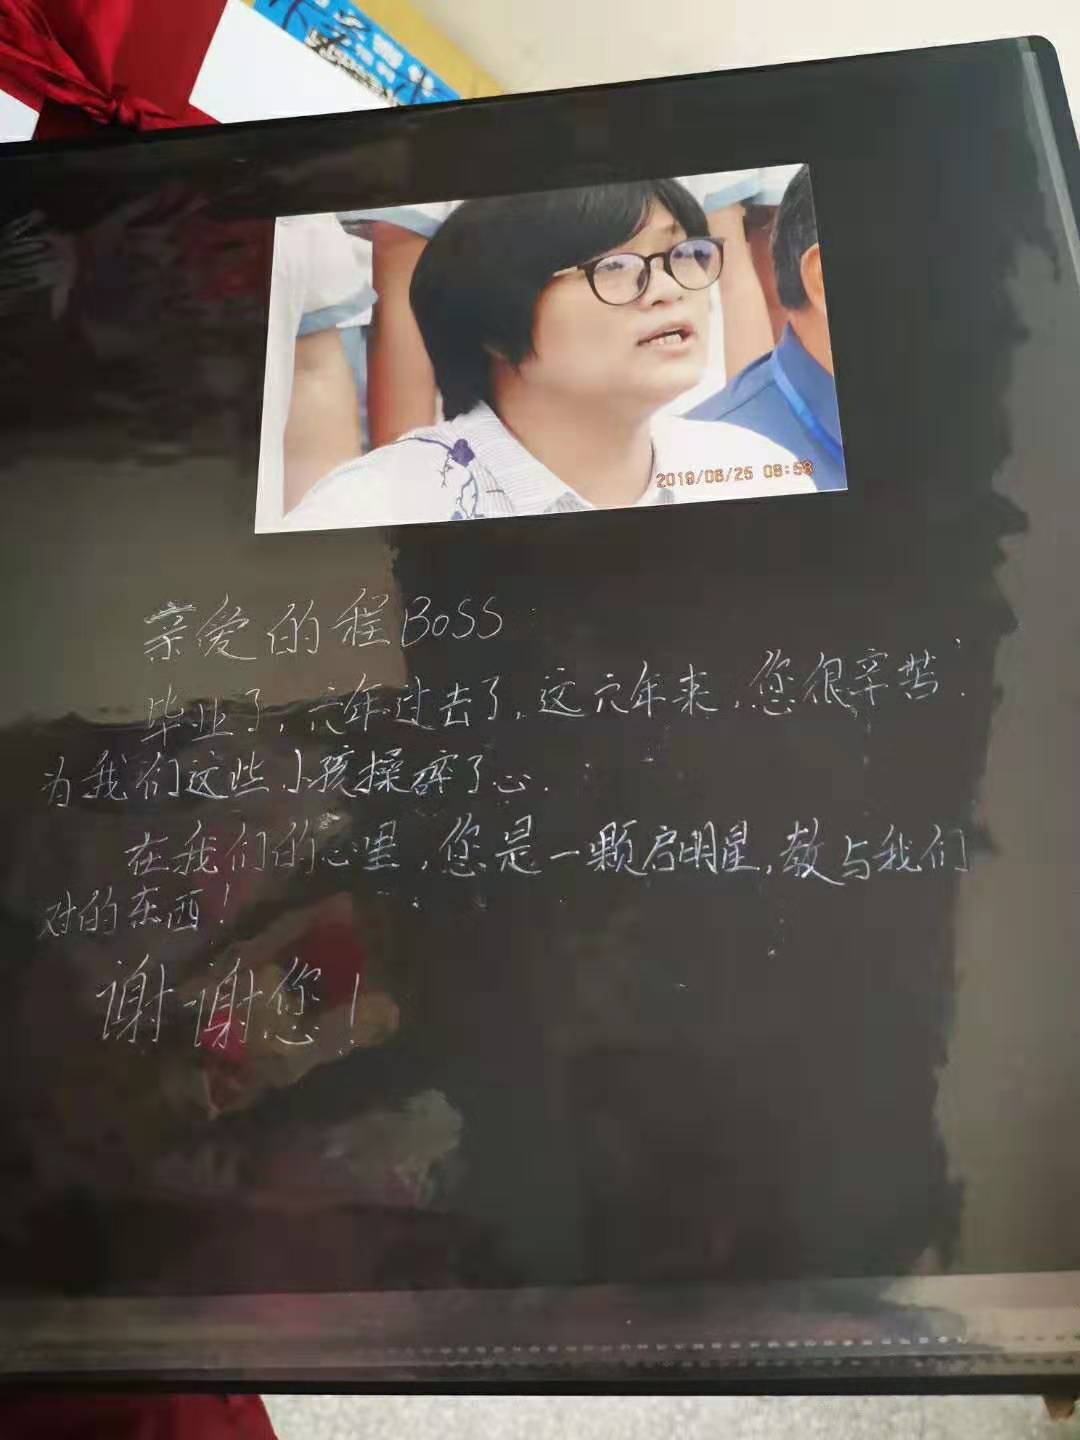 2019/06/25 08:53
亲爱的程BOSS:
毕业了,六年过去了,这六年来,您很辛苦.
为我们这些小孩操碎了心.
在我们的心里,您是一颗启明星,教与我们
对的东西!
谢谢您!